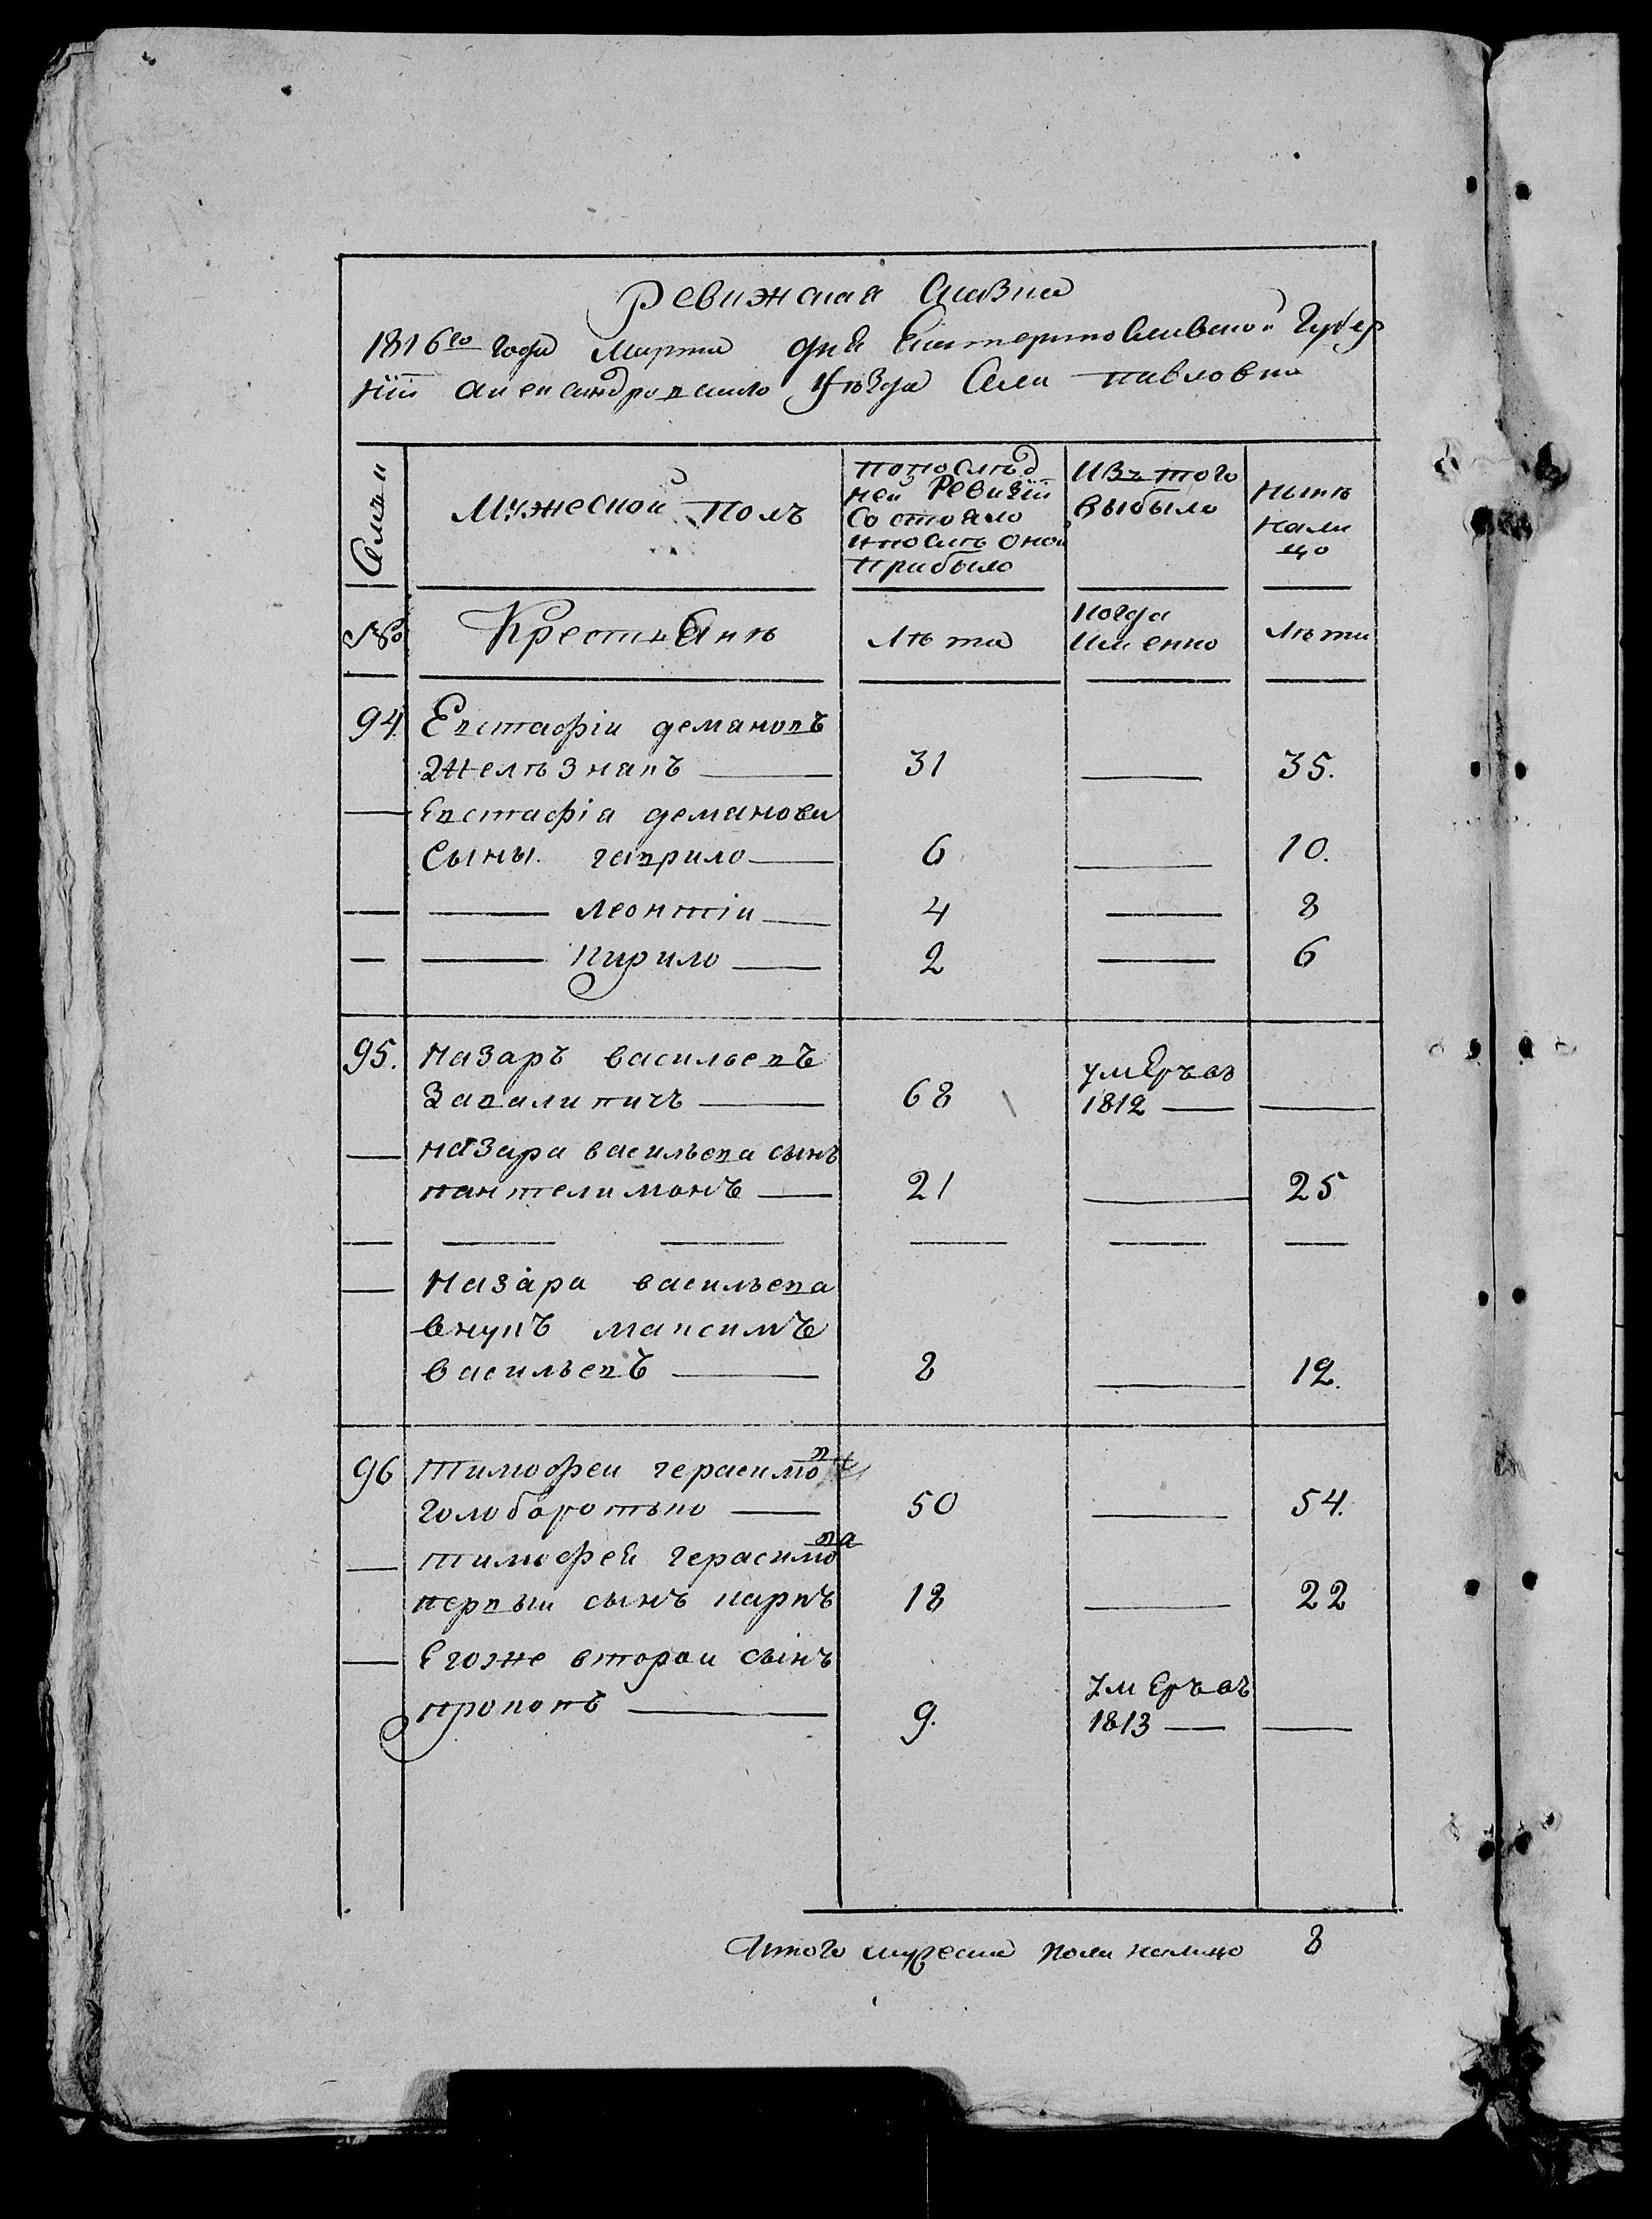 Ревижская Сказка
1816го года Марта дня Екатеринославской Губер
нїи Александровского Уѣзда Села Павловки
Семьи
Мужеской Полъ
По последней Ревизїи Состояло и после оной Прибыло
Изъ того выбыло
Нынѣ налицо
№
Крестьянѣ
Лѣта
Когда Именно
Лѣта
94 Евстафiи демяновъ
Желѣзнякъ 31 35.
Евстафiа демянова
Сыны гаврило 6 10.
леонтiи 4 8
Кирило 2 6
95. Назаръ васильевъ
Завалипичъ 68 умеръ въ 1812
Назара васильева сынъ
пантелимонъ 21 25
Назара васильева
внукъ максимъ
васильевъ 8 12.
96 Тимофеи герасимовъ
голоборотько 50 54.
Тимофея герасимова
первыи сынъ карпъ 18 22
Егоже второи сынъ
прокопъ 9. Умеръ въ 1813
Итого мужеска пола налицо 8